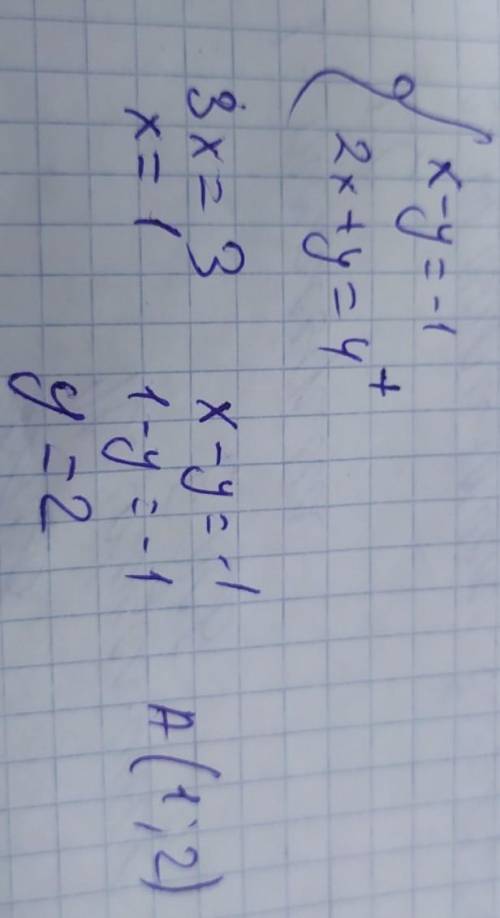 x-y=-1
2x+y=4 +
3x=3
x=1
x-y=-1
1-y=-1
y=2
A(1;2)